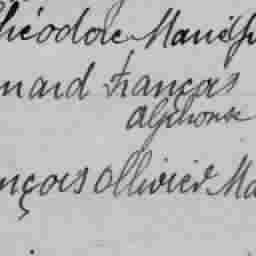 Théodore
nard François
alphonse
nçois Ollivier Ma